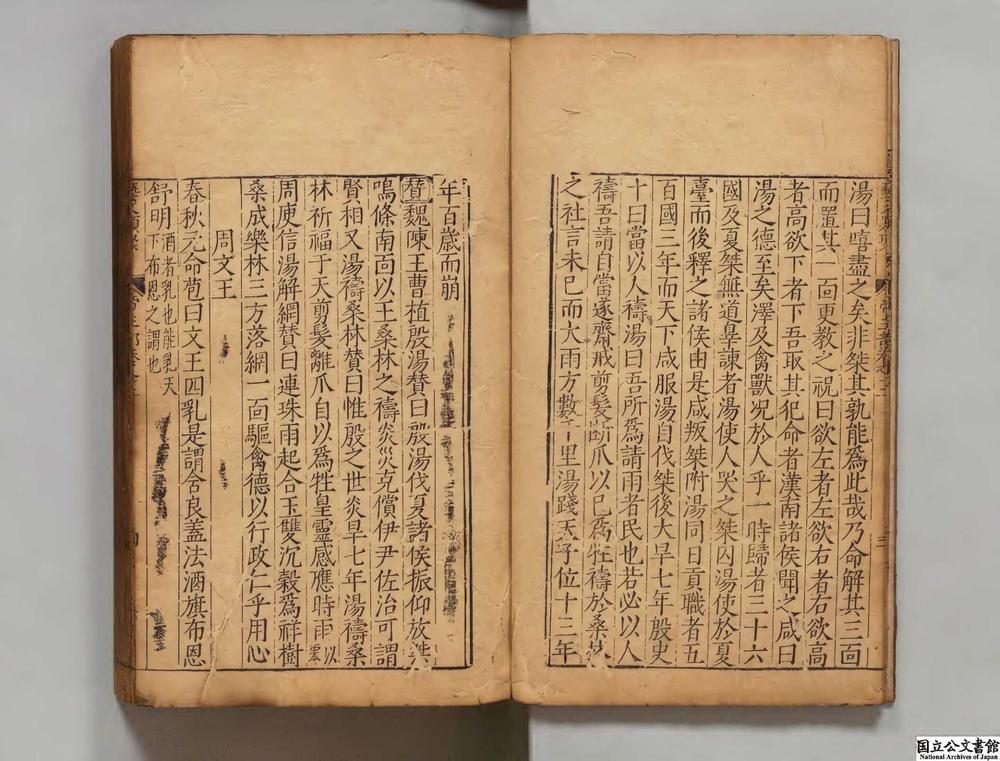 湯曰嘻盡之矣非桀其孰能爲此哉乃命解其三面
而置其一面更教之祝曰欲左者左欲右者右欲高
者高欲下者下吾取其犯命者漢南諸侯聞之咸曰
湯之德至矣澤及禽獸况於人乎一時歸者三十六
國及夏桀無道辠諫者湯使人哭之桀囚湯使於夏
臺而後釋之諸侯由是咸叛桀附湯同日貢職者五
百國三年而天下咸服湯自伐桀後大旱七年殷史
卜曰當以人禱湯曰吾所爲請雨者民也若必以人
禱吾請自當遂齋戒剪髮斷爪以己爲牲禱於桑林
之社言未已而大雨方數千里湯踐天子位十三年
年百歲而崩
贊魏陳王曹植殷湯贊曰殷湯伐夏諸侯振仰放桀
鳴條南面以王桑林之禱炎災克償伊尹佐治可謂
賢相又湯禱桑林贊曰惟殷之世炎旱七年湯禱桑
林祈福于天剪髮離爪自以爲牲皇靈感應時雨以零
周庾信湯解網贊曰連珠雨起合玉雙沉穀爲祥樹
桑成樂林三方落網一面驅禽德以行政仁乎用心
周文王
春秋元命苞曰文王四乳是謂含良蓋法酒旗布恩
舒明酒者乳也能乳天下布恩之謂也
国立公文書館
National Archives of Japan